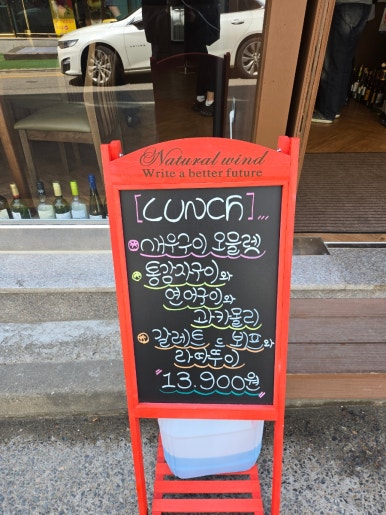 Natural wind
Write a better future
[LUNCH]...
새우구이 오믈렛
통감자구이와
연어구이와
과카몰리
갈레트 ㄴ 보프와
라따뚜이
"13.900원"